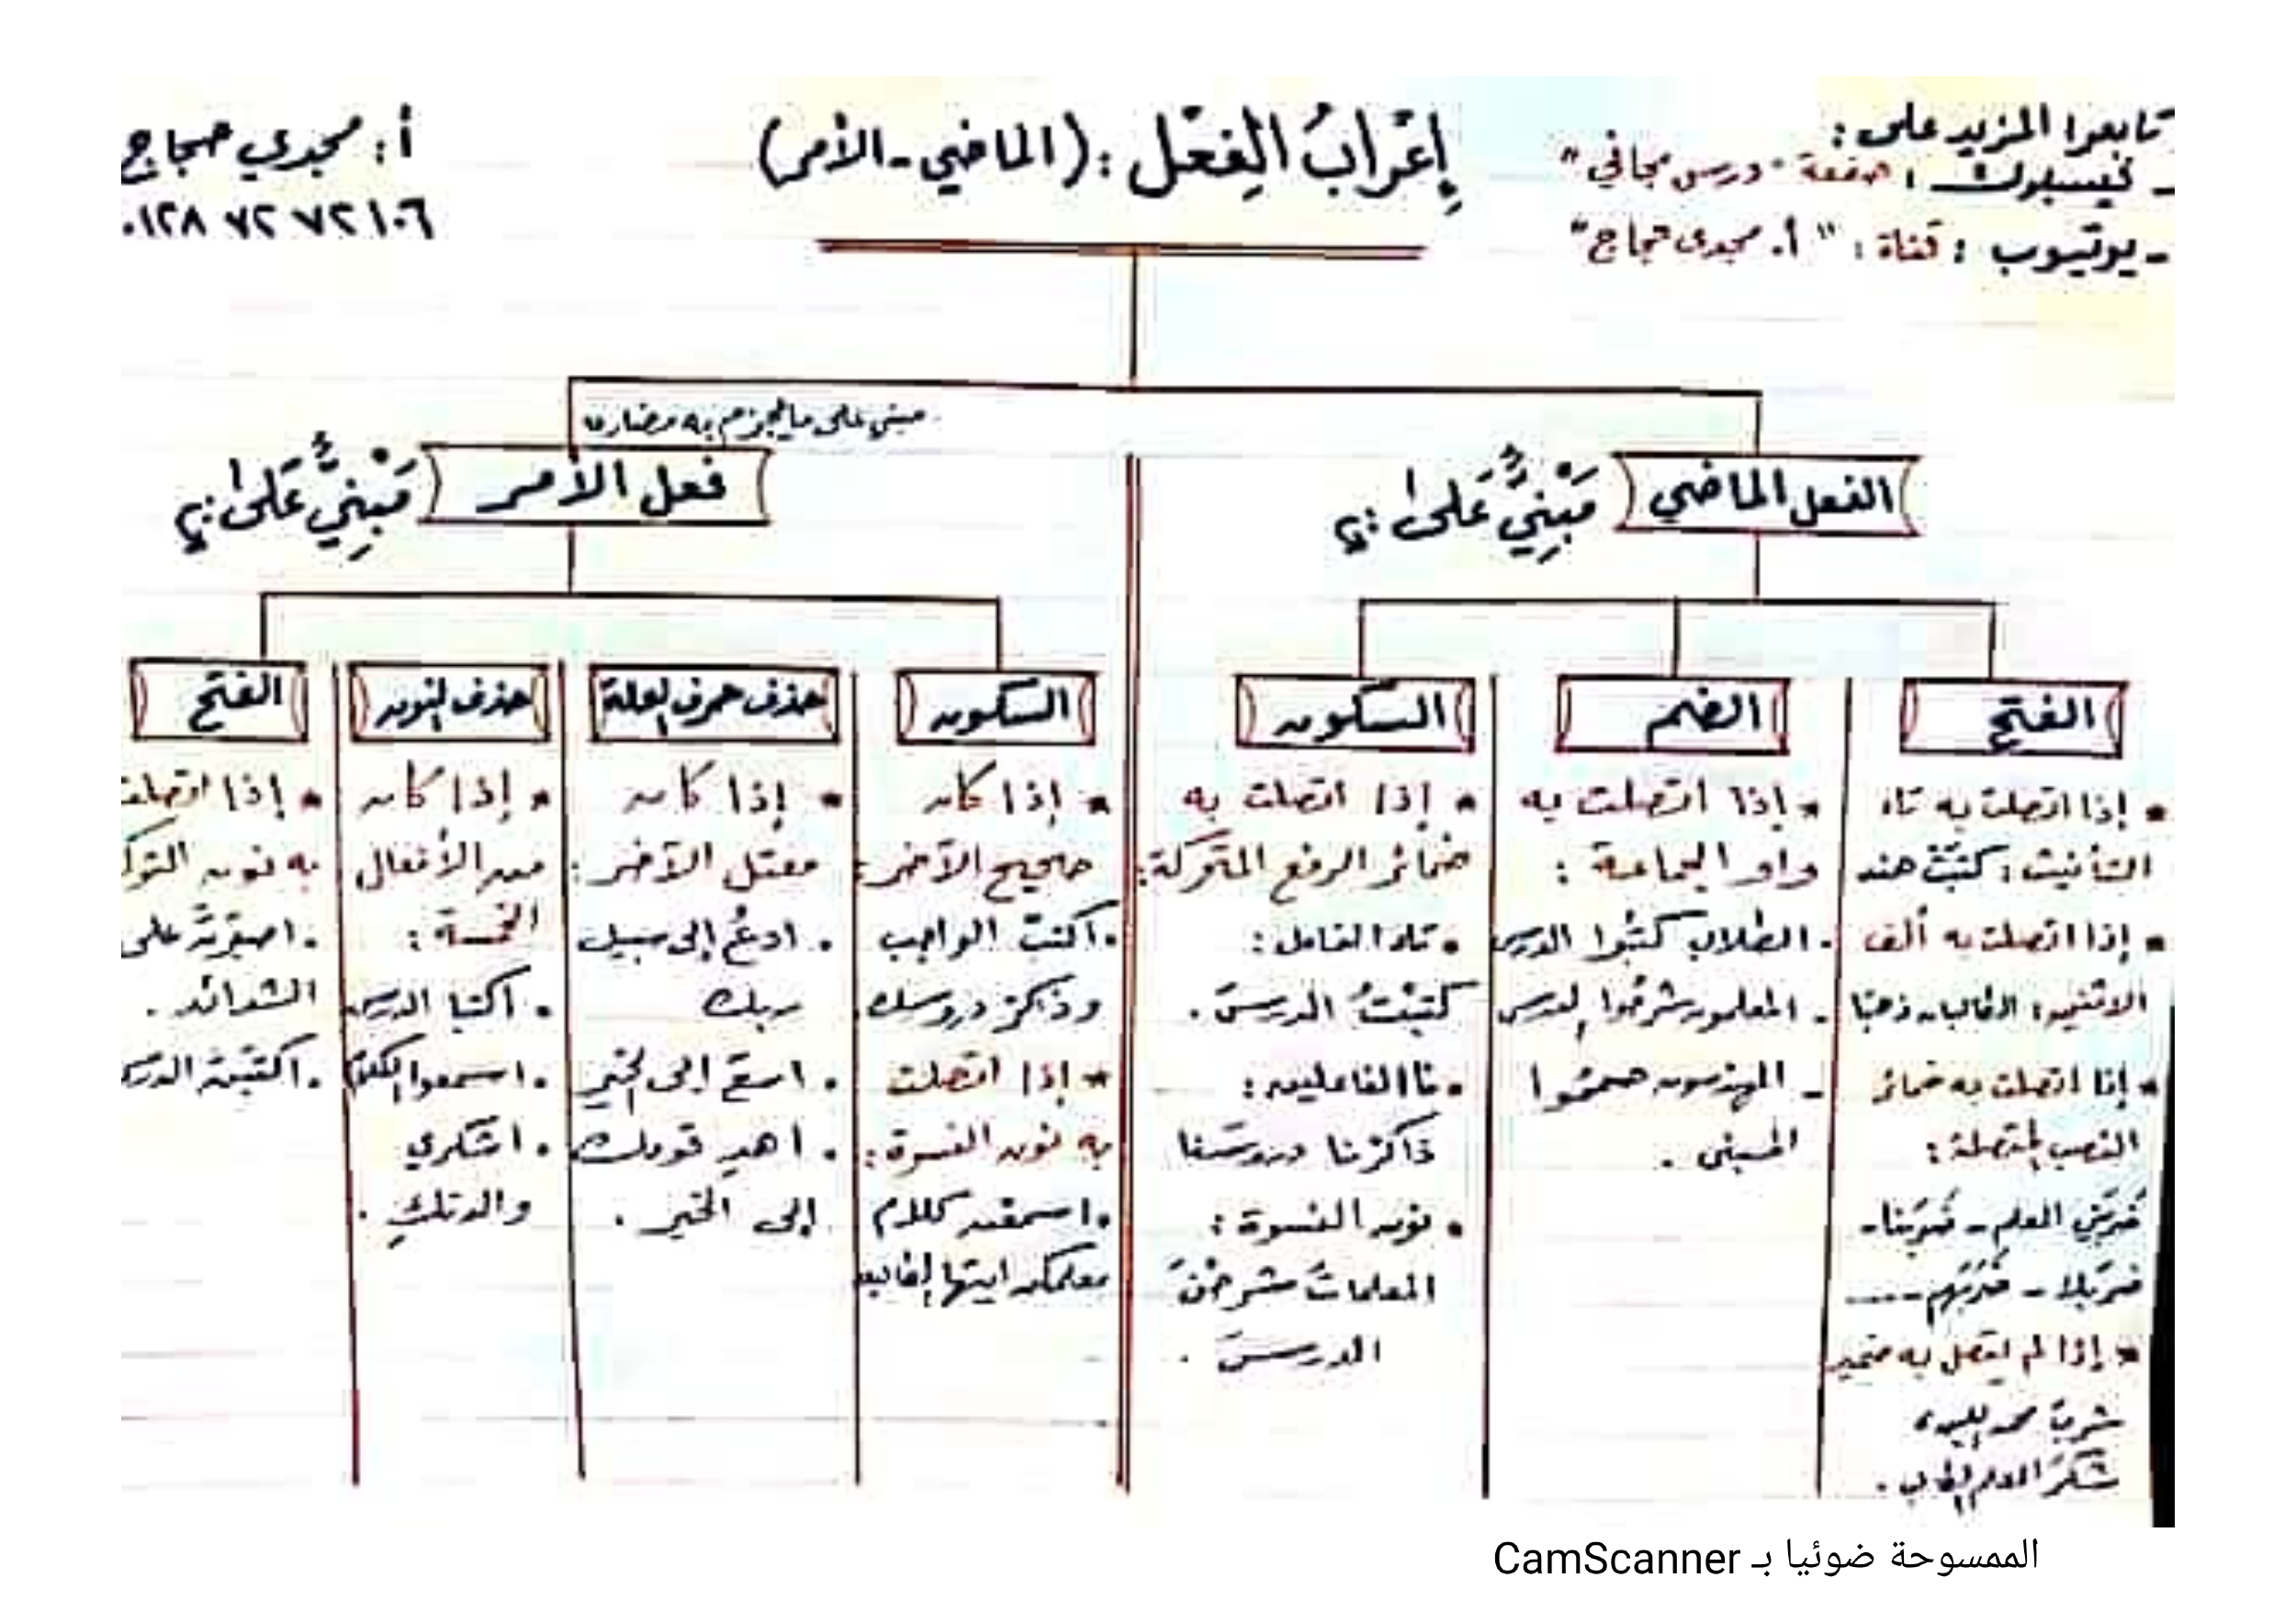 تابعوا المزيد على:
- فيسبوك: صفحة "درس مجاني"
- يوتيوب: قناة: "أ. مجدى حجاج"
إعْرَابُ الفِعْل: (الماضي - الأمر)
أ: مجدي حجاج
٠١٢٨ ٧٢ ٧٢ ١٠٦
الفعل الماضي
مَبْنِيٌّ عَلَى:
الفتح
* إذا اتصلت به تاء
التأنيث: كتبَتْ هند
* إذا اتصلت به ألف
الاثنين: الطالبان ذهبَا
* إذا اتصلت به ضمائر
النصب المتصلة:
ضَرَبَنِي المعلم - ضَرَبَنا -
ضَرَبَك - ضَرَبَهم - ....
* إذا لم يتصل به ضمير
شربَ محمد
شكرَ المعلم الطالب.
الضم
* إذا اتصلت به
واو الجماعة:
. الطلاب كتبُوا الدرس
- المعلمون شرحُوا الدرس
- المهندسون صممُوا
المبنى.
السكون
* إذا اتصلت به
ضمائر الرفع المتحركة:
. تاء الفاعل:
كتبْتُ الدرسَ.
. نا الفاعلين:
ذاكرْنا دروسَنا
. نون النسوة:
المعلماتُ شرحْنَ
الدرسَ.
مبني على ما يجزم به مضارعه
فعل الأمر
مَبْنِيٌّ عَلَى:
السكون
* إذا كان
صحيح الآخر:
. اكتبْ الواجب
وذاكرْ دروسك
* إذا اتصلت
به نون النسوة:
. اسمعْن كلام
معلمكن ايتها
حذف حرف العلة
* إذا كان
معتل الآخر:
. ادعُ إلى سبيل
ربك
. اسعَ إلى الخير
. اهدِ قومك
إلى الخير.
حذف النون
* إذا كان
من الأفعال
الخمسة:
. اكتبا الدرس
. اسمعوا الكلام
. اشكري
والدتكِ.
الفتح
* إذا اتصلت
به نون
. اصبرَنَّ على
الشدائد.
. اكتبَنَّ الدرس
الممسوحة ضوئيا بـ CamScanner